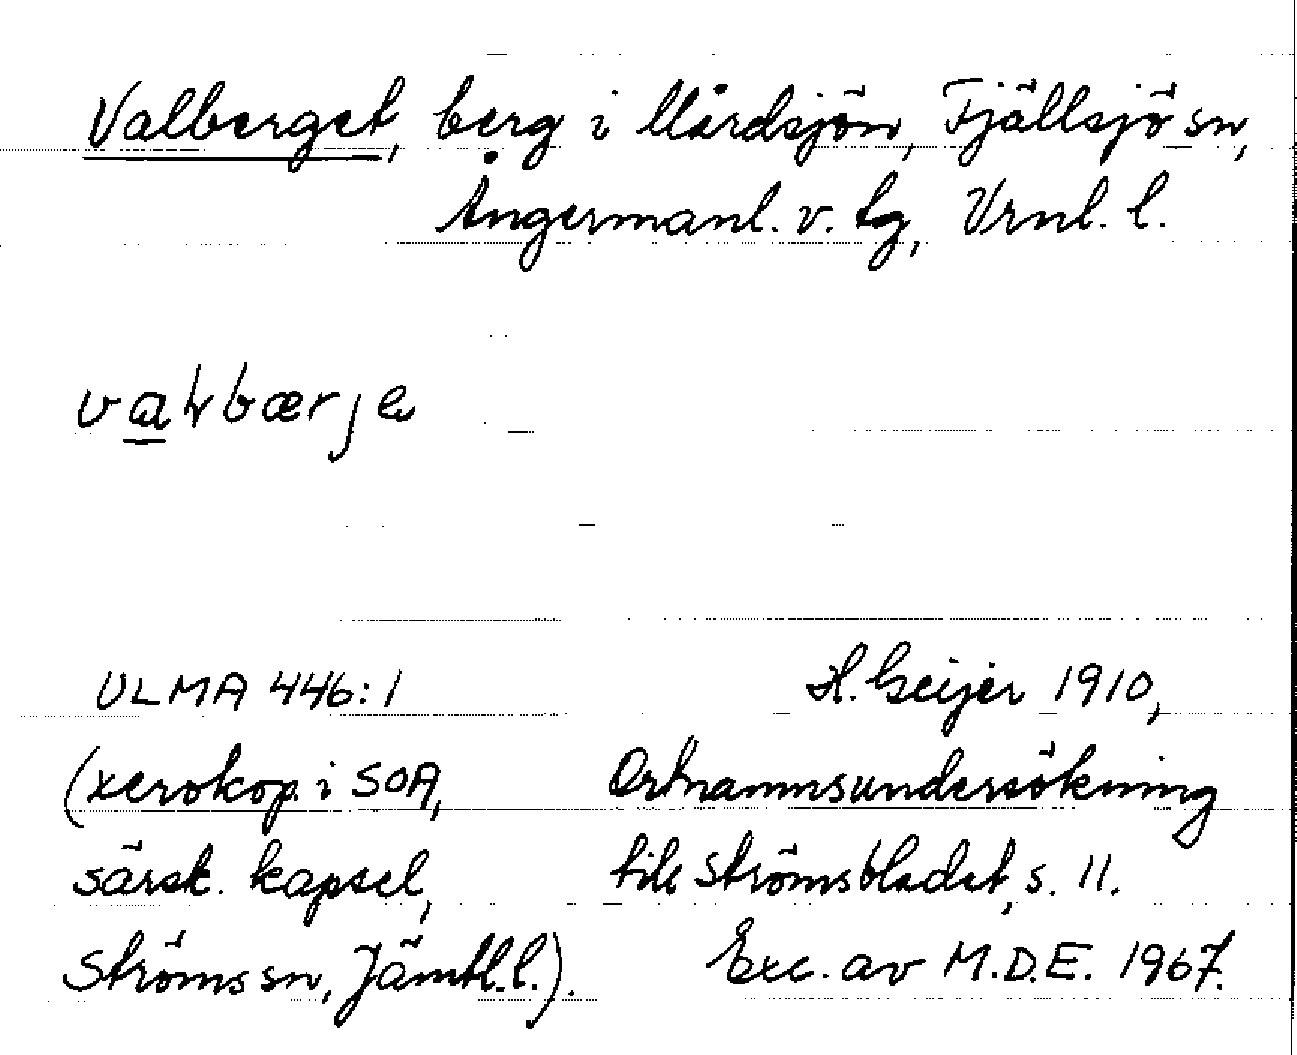 Valberget, berg i Mårdsjön, Fjällsjö sn,
Ångermanl. v. tg, Vrnl. l.
valbærjɐ
ULMA 446:1
(xerokop. i SOA,
särsk. kapsel,
Ströms sn, Jämtl.l.).
H. Geijer 1910,
Ortnamnsundersökning
till Strömsbladet, s. 11.
Exc. av M.D.E. 1967.